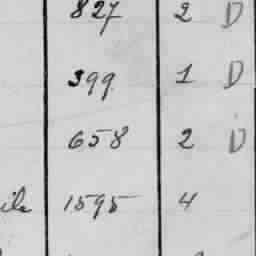 827 2 D
399 1 D
658 2 D
1595 4